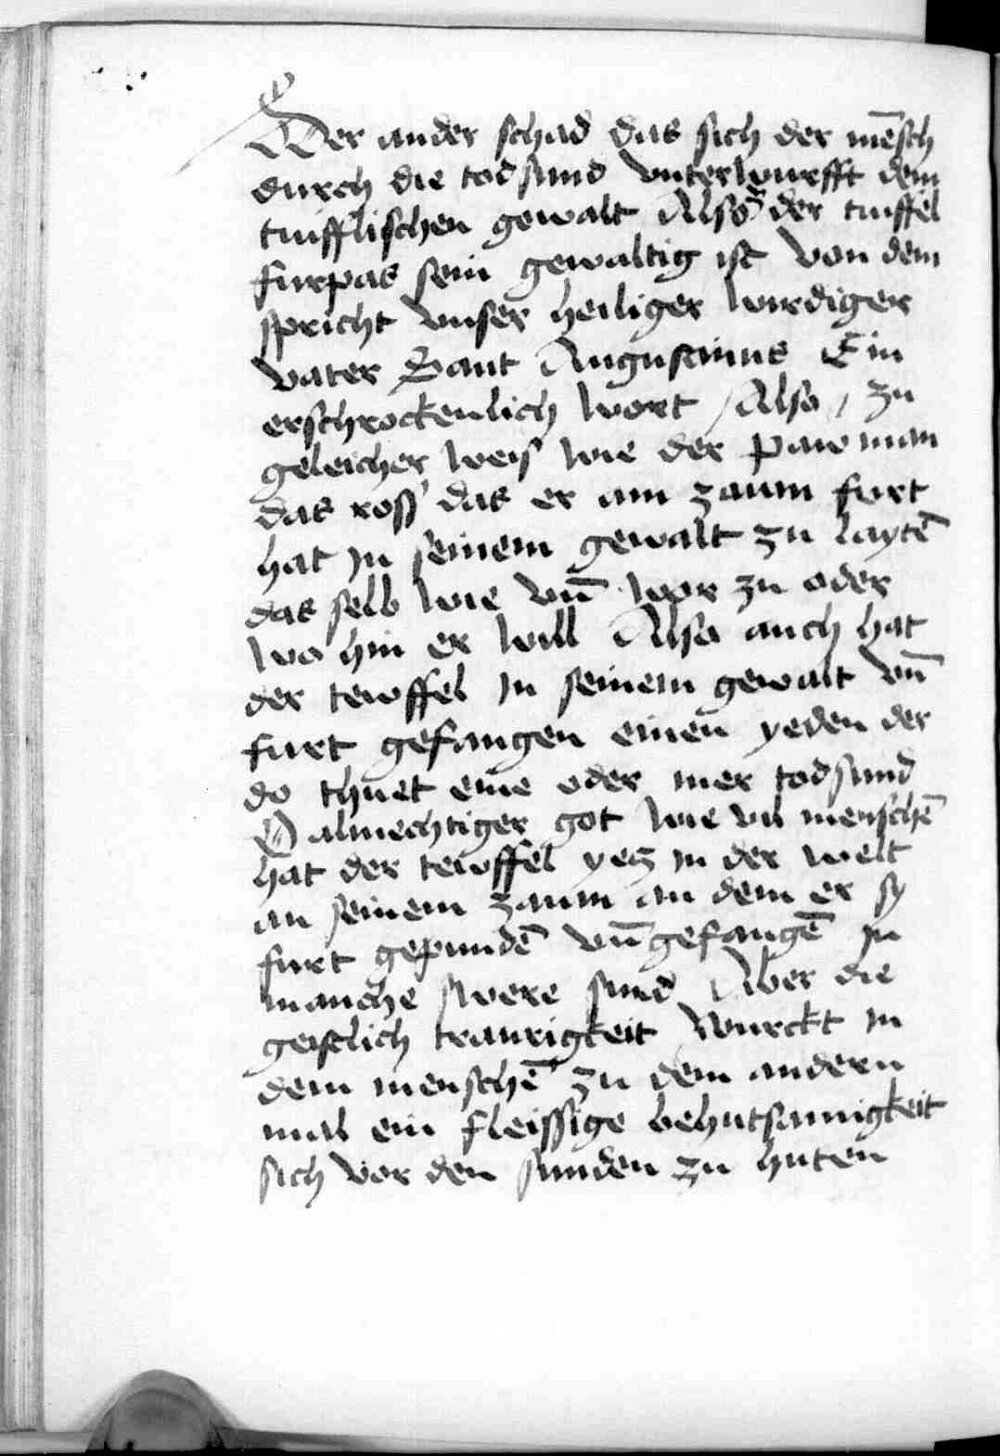 Der ander schad das sich der mēsch
durch die tod sund vnterwurfft dem
tuifflischen gewalt Also der tuiffel
furpas sein gewaltig ist von dem
spricht vnser heiliger wirdiger
vater Sant Augustinus Ein
erschrockenlich wort / Also / zu
geleicher weis wie der paw man
das ross das er am zaum furt
hat in seinem gewalt zu laytē
das selb wie vn̄ wor zu oder
wo hin er will Also auch hat
der tewffel in seinem gewalt vn̄
furt gefangen einen yeden der
do thuet eine oder mer tod sund
O almechtiger got wie vil menschē
hat der tewffel yetz in der welt
an seinem zaum an dem er sy
furt gepundē vn̄ gefangē in
manche swere sund Aber die
geistlich traurigkeit wurckt in
dem menschē zu dem andern
mal ein fleissige behutsamigkeit
sich vor den sunden zu huten